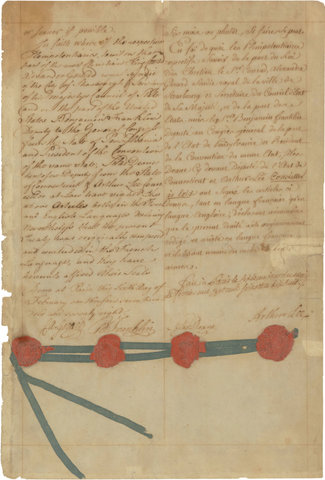 or sooner if possible.
In faith where of the respective
Plenipotentiaries, to wit on the part
of the most Christian King
Alexander Gerard royal syndic
of the City of Strasbourgh & Secretary
of his Majesty's Council of State
and on the part of the United
States Benjamin Franklin
Deputy to the General Congress
from the State of
and President of the Convention
of the same state, Silas Deane
heretofore Deputy from the State
of Connecticut & Arthur Lee
at Law have signed the
Articles both in the French
and English Languages declaring
Nevertheless that the present
Treaty was originally composed
and concluded in the French
Language, and they have
hereunto affixed their Seals
Done at Paris, this sixth Day of
February, one thousand seven hun-
dred and seventy eight.
Six mois ou plutôt, si faire se peut.
En foi de quoi les Plenipotentiaires
respectifs, sçavoir de la part du Roi
Très Chretien
Royal de la ville de
Strasbourg et Secretaire du Conseil d'Etat
de Sa Majesté, et de la part des
Etats unis, les Sr. Benjamin Franklin
Deputé au Congrès général de la part
de l'Etat de Pensylvanie et President
de la Convention du même Etat, Silas
Deane cy devant Deputé de l'Etat de
Connecticut et Arthur Lée Conseiller
ès Loix ont signé les articles ci
dessus, tant en langue françoise qu'en
langue Angloise, déclarant néanmoins
que le present traité a été originairement
rédigé et arrêté en langue françoise
armes.
B Franklin
Silas Deane
Arthur Lee